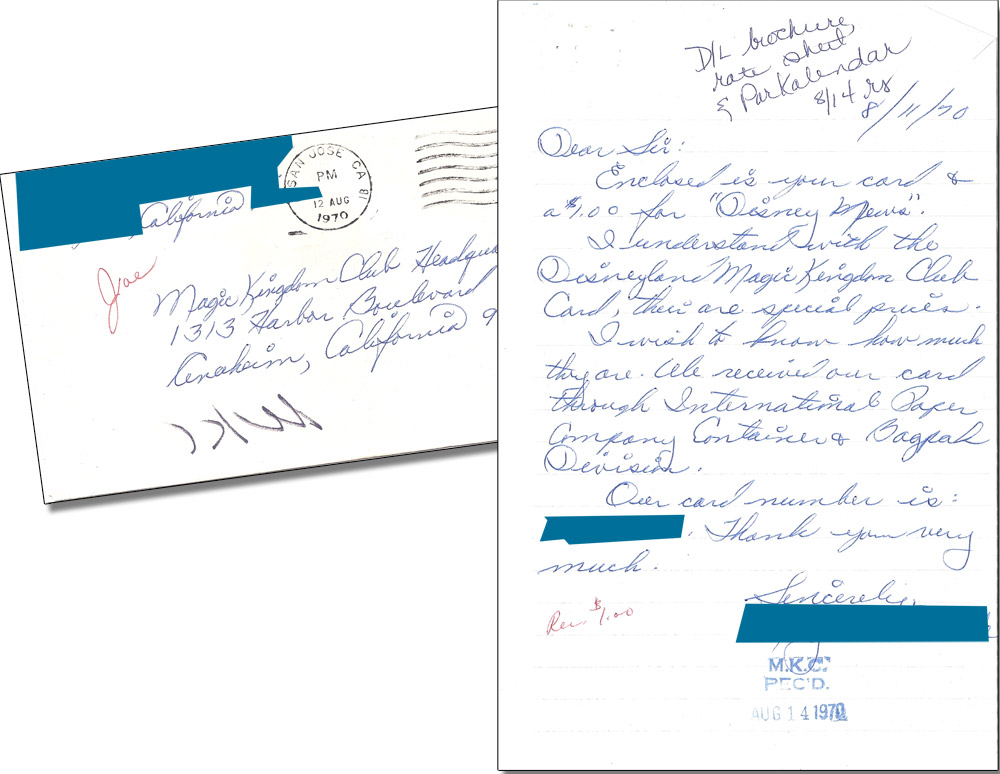 SAN JOSE CA
PM
12 AUG
1970
California
Joe
Magic Kingdom Club Headqua
1313 Harbor Boulevard
Anaheim, California 9
MKC
D/L brochure,
rate sheet
& ParKalendar
8/14 rs
8/11/70
Dear Sir:
Enclosed is your card &
a $1.00 for "Disney News".
I understand with the
Disneyland Magic Kingdom Club
Card, their are special prices.
I wish to know how much
they are. We received our card
through International Paper
Company Container & Bagpak
Division.
Our card number is:
. Thank you very
much.
Sincerely,
Rec. $1.00
M.K.C.
REC'D.
AUG 14 1970